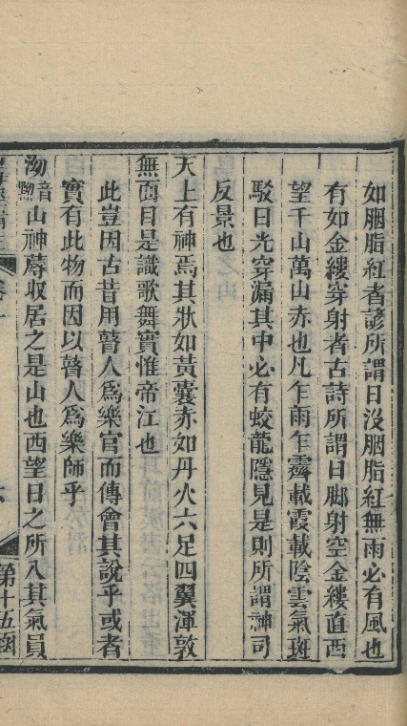 如胭脂紅者諺所謂日沒胭脂紅無雨必有風也
有如金縷穿射者古詩所謂日腳射空金縷直西
望千山萬山赤也凡乍雨乍霽載霞載陰雲氣斑
駁日光穿漏其中必有蛟龍隱見是則所謂神司
反景也
天上有神焉其狀如黃囊赤如丹火六足四翼渾敦
無面目是識歌舞實惟帝江也
此豈因古昔用瞽人爲樂官而傅會其說乎或者
實有此物而因以瞽人爲樂師乎
泑音黝山神蓐收居之是山也西望日之所入其氣員
卷十
六
第十五函